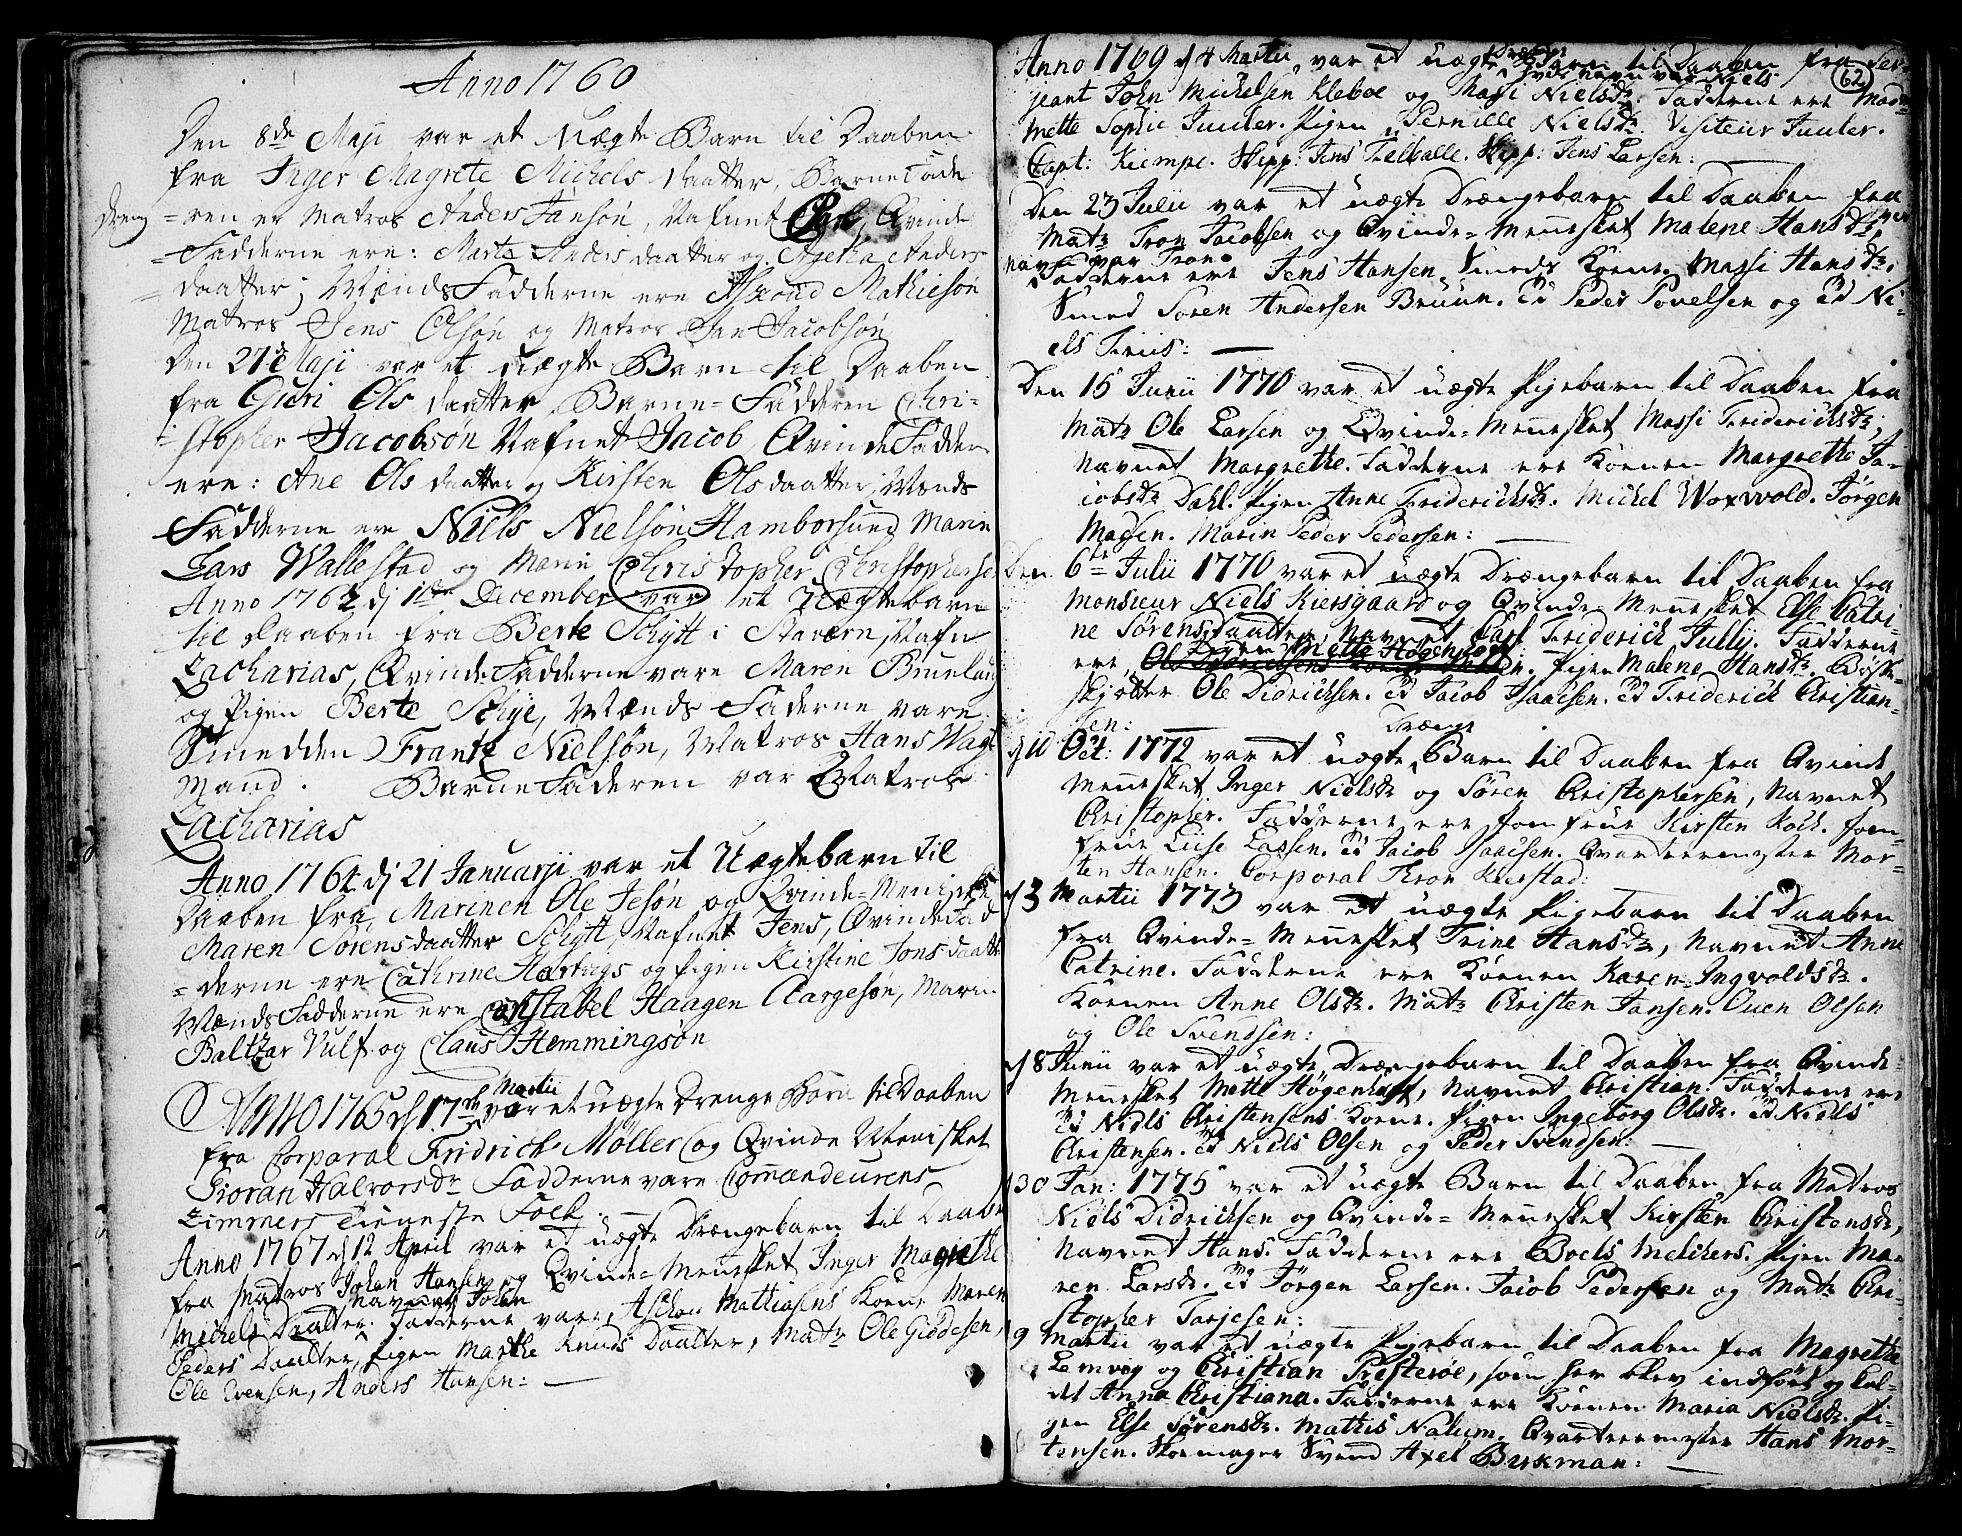 Anno 1760
Den 8de Maji var et Uægte Barn til Daaben
fra Inger Magrete Michels daatter, Barnefade
dreng
=ren er Matros Anders Jansøn, Nafnet Qvinde
=Fadderne ere: Marte Anders daatter og Agetha Anders
=daatter; MændsFadderne ere Askoud Mathiesøn
Matros Jens Olsøn og Matros Jacobsøn
Den 27de Maji var et Uægte Barn til Daaben
fra Guri Ols daatter, Barne=Fadderen Chri=
=stopher Jacobsøn Nafnet Jacob QvindeFadder
ere: Ane Ols daatter og Kirsten Ols daatter, Mænds
Fadderne ere Niels Nielsøn Hamborsund Marin
Lars Wallestad og Marin Christopher Christophersø
Anno 1762 dj 1ste December var et Uægtebarn
til Daaben fra Berte Schytt i Stavern, Nafn
Zacharias, QvindeFadderne vare Maren Bruulaug
og Pigen Berte Schye, Mænds Faderne vare
Smedden Frantz Nielsøn, Matros Hans Wagt
Mand. BarneFaderen var Matros
Zacharias
Anno 1764 dj 21 Januarji var et Uægtebarn til
Daaben fra Marinen Ole Jesøn og Qvinde=Meniske
Maren Sørensdaatter Schytt, Nafnet Jens, QvindeFad
=derne ere Cathrine Hartvigs og Pigen Kirstine Jonsdaatt
MændsFadderne ere Constabel Haagen Aargesøn, Marin
Baltzar Vulf og Claus Hemmingsøn
Martii
Anno 1765 d 17de var et uægte Drenge Barn til Daaben
fra Corporal Fridrich Møller og Qvinde Menisket
Gioran Halvorsdr Fadderne vare Commandeurens
Zimmers Tieneste Folck.
Anno 1767 d 12 April var et uægte Drængebarn til Daabe
fra Matros Johan Hansen og Qvinde=Mennesket Inger Magrethe
navnet Johan
Michels Daatter. Fadderne vare, Aschou Mathiasens Kone, Maren
Peders Daatter, Pigen Marthe Knuds Daatter, Matr Ole Giddesen,
Ole Evensen, Anders Hansen: —
62
Anno 1769 d 4 Martii, var et uægte Barn til Daaben fra Ser=
hvis navn var Niels
jeant John Michelsen Kleboe og Massi Nielsdr. Fadderne ere Mad
Mette Sophie Juuler. Pigen Pernille Nielsdr. Visiteur Juuler.
Capt: Kiempe. Skipp: Jens Fielballe. Skipp: Jens Larsen: —
Den 23 Julii var et uægte Drængebarn til Daaben fra
Matr Tron Jacobsen og Qvinde=Mennesket Malene Hansdr,
navn var Tron.
Fadderne ere Jens Hansen Smeds Koene. Massi Hansdr.
Smed Søren Andersen Bruun. Ed Peder Povelsen og Ed Ni=
els Friis: —
Den 15 Junii 1770 var et uægte Pigebarn til Daaben fra
Matr Ole Larsen og Qvinde=Mennesket Massi Friderichsdr;
Navnet Margrethe. Fadderne ere Koenen Margrethe Ja=
cobsdr Dahl. Pigen Anne Friderichsdr. Michel Woxwold. Jørgen
Madsen. Marin Peder Pedersen: —
Den 6te Julii 1770 var et uægte Drængebarn til Daaben fra
Monsieur Niels Kiersgaard og Qvinde Mennesket Else Catri=
ne Sørensdaatter, Navnet Carl Friderich Jully. Fadderne
Pigen Mette Høgenhoft
ere Pigen Malene Hansdr. Bøsse
skjøtter Ole Didrichsen. Ed Jacob Isaacsen. Ed Friderich Christian=
sen: —
Drænge
d 10 Oct: 1772 var et uægte Barn til Daaben fra Qvinde
Mennesket Inger Nielsdr og Søren Christophersen, Navnet
Christopher. Fadderne ere Jomfrue Kirsten Koch. Jom=
frue Luise Lassen. Ed Jacob Isaacsen. Qvarteermester Mor=
ten Hansen. Corporal Tron Kierstad:
d 3 Martii 1773 var et uægte Pigebarn til Daaben
fra Qvinde=Mennesket Trine Hansdr, Navnet Anne
Catrine. Fadderne ere Koenen Karen Ingvoldsdr.
Koenen Anne Olsdr. Matr Christen Jansen. Ouen Olsen
og Ole Svendsen:
d 8 Junii var et uægte Drængebarn til Daaben fra Qvinde=
Mennesket Mette Høgenhoft, Navnet Christian. Fadderne ere
Ed Niels Christensens Koene. Pigen Ingeborg Olsdr. Ed Niels
Christensen. Ed Niels Olsen og Peder Svendsen: —
d 30 Jan: 1775 var et uægte Barn til Daaben fra Matros
Niels Didrichsen og Qvinde=Mennesket Kirsten Christensdr,
Navnet Hans. Fadderne ere Boels Melchers. Pigen Ma=
ren Larsdr. Ed Jørgen Larsen. Jacob Pedersen og Matr Chri=
stopher Tarjesen:
d 9 Martii var et uægte Pigebarn til Daaben fra Magrethe
Lemvig og Christian Presterøe, som her blev indført og kal=
det Anna Christiana. Fadderne ere Koenen Maria Nielsdr. Pi=
gen Else Sørensdr. Mathis Nalum. Qvarteermester Hans Mor=
tensen. Skoemager Svend Axel Birkman: —